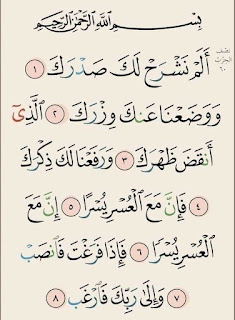 بِسْمِ ٱللَّهِ ٱلرَّحْمَٰنِ ٱلرَّحِيمِ
نصف
الحزب
٦٠
أَلَمْ نَشْرَحْ لَكَ صَدْرَكَ ١
وَوَضَعْنَا عَنكَ وِزْرَكَ ٢ ٱلَّذِىٓ
أَنقَضَ ظَهْرَكَ ٣ وَرَفَعْنَا لَكَ ذِكْرَكَ
٤ فَإِنَّ مَعَ ٱلْعُسْرِ يُسْرًا ٥ إِنَّ مَعَ
ٱلْعُسْرِ يُسْرًا ٦ فَإِذَا فَرَغْتَ فَٱنصَبْ
٧ وَإِلَىٰ رَبِّكَ فَٱرْغَب ٨